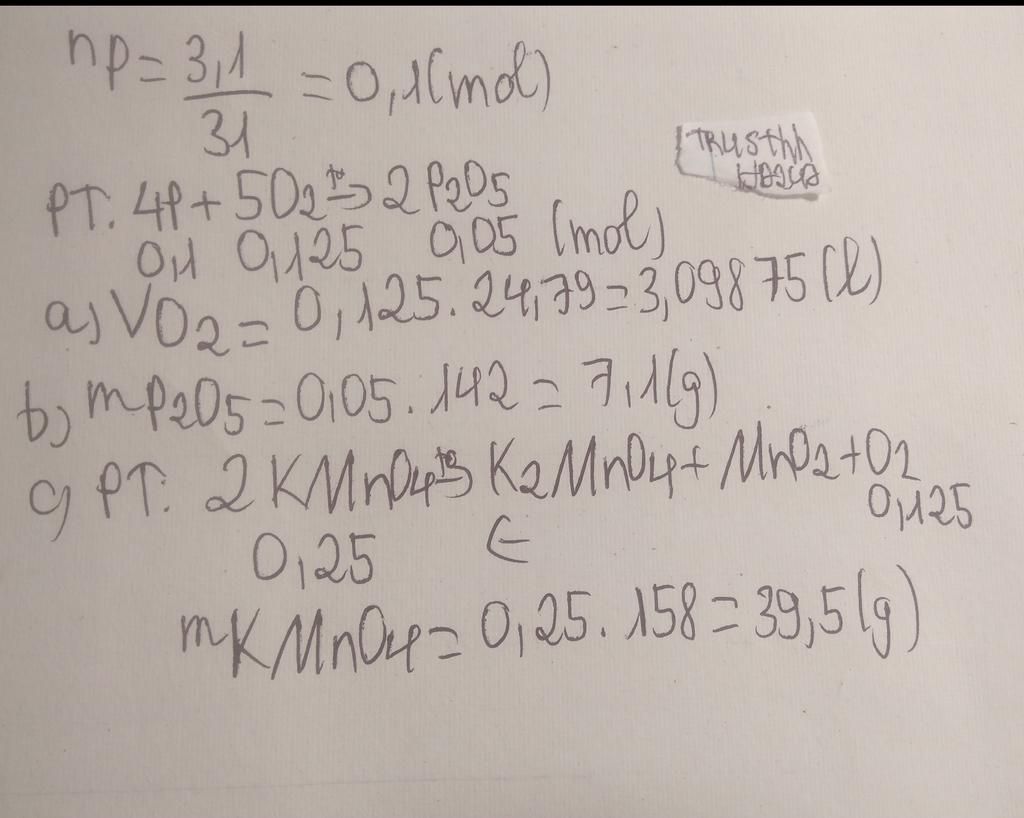 np = 3,1 / 31 = 0,1 (mol)
PT: 4P + 5O2 t°→ 2P2O5
0,1 0,125 0,05 (mol)
a) VO2 = 0,125 . 24,79 = 3,09875 (l)
b) mP2O5 = 0,05 . 142 = 7,1 (g)
c) PT: 2KMnO4 t°→ K2MnO4 + MnO2 + O2
0,25 ← 0,125
mKMnO4 = 0,25 . 158 = 39,5 (g)